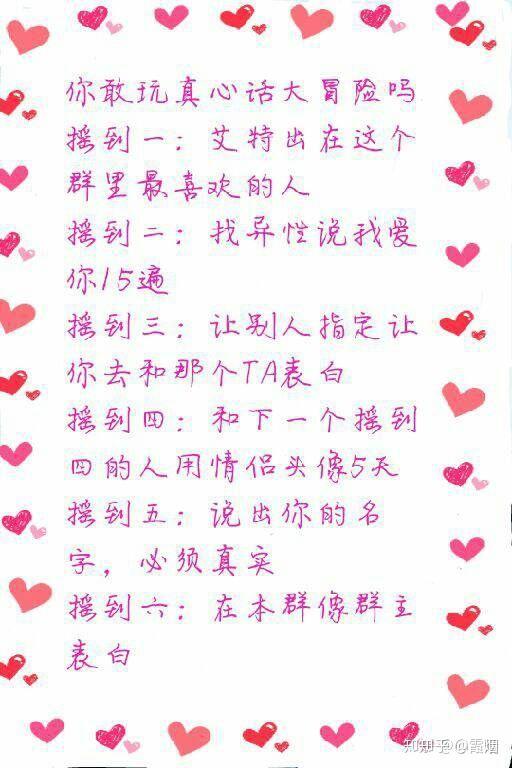 你敢玩真心话大冒险吗
摇到一：艾特出在这个
群里最喜欢的人
摇到二：找异性说我爱
你15遍
摇到三：让别人指定让
你去和那个TA表白
摇到四：和下一个摇到
四的人用情侣头像5天
摇到五：说出你的名
字，必须真实
摇到六：在本群像群主
表白
知乎 @霞烟